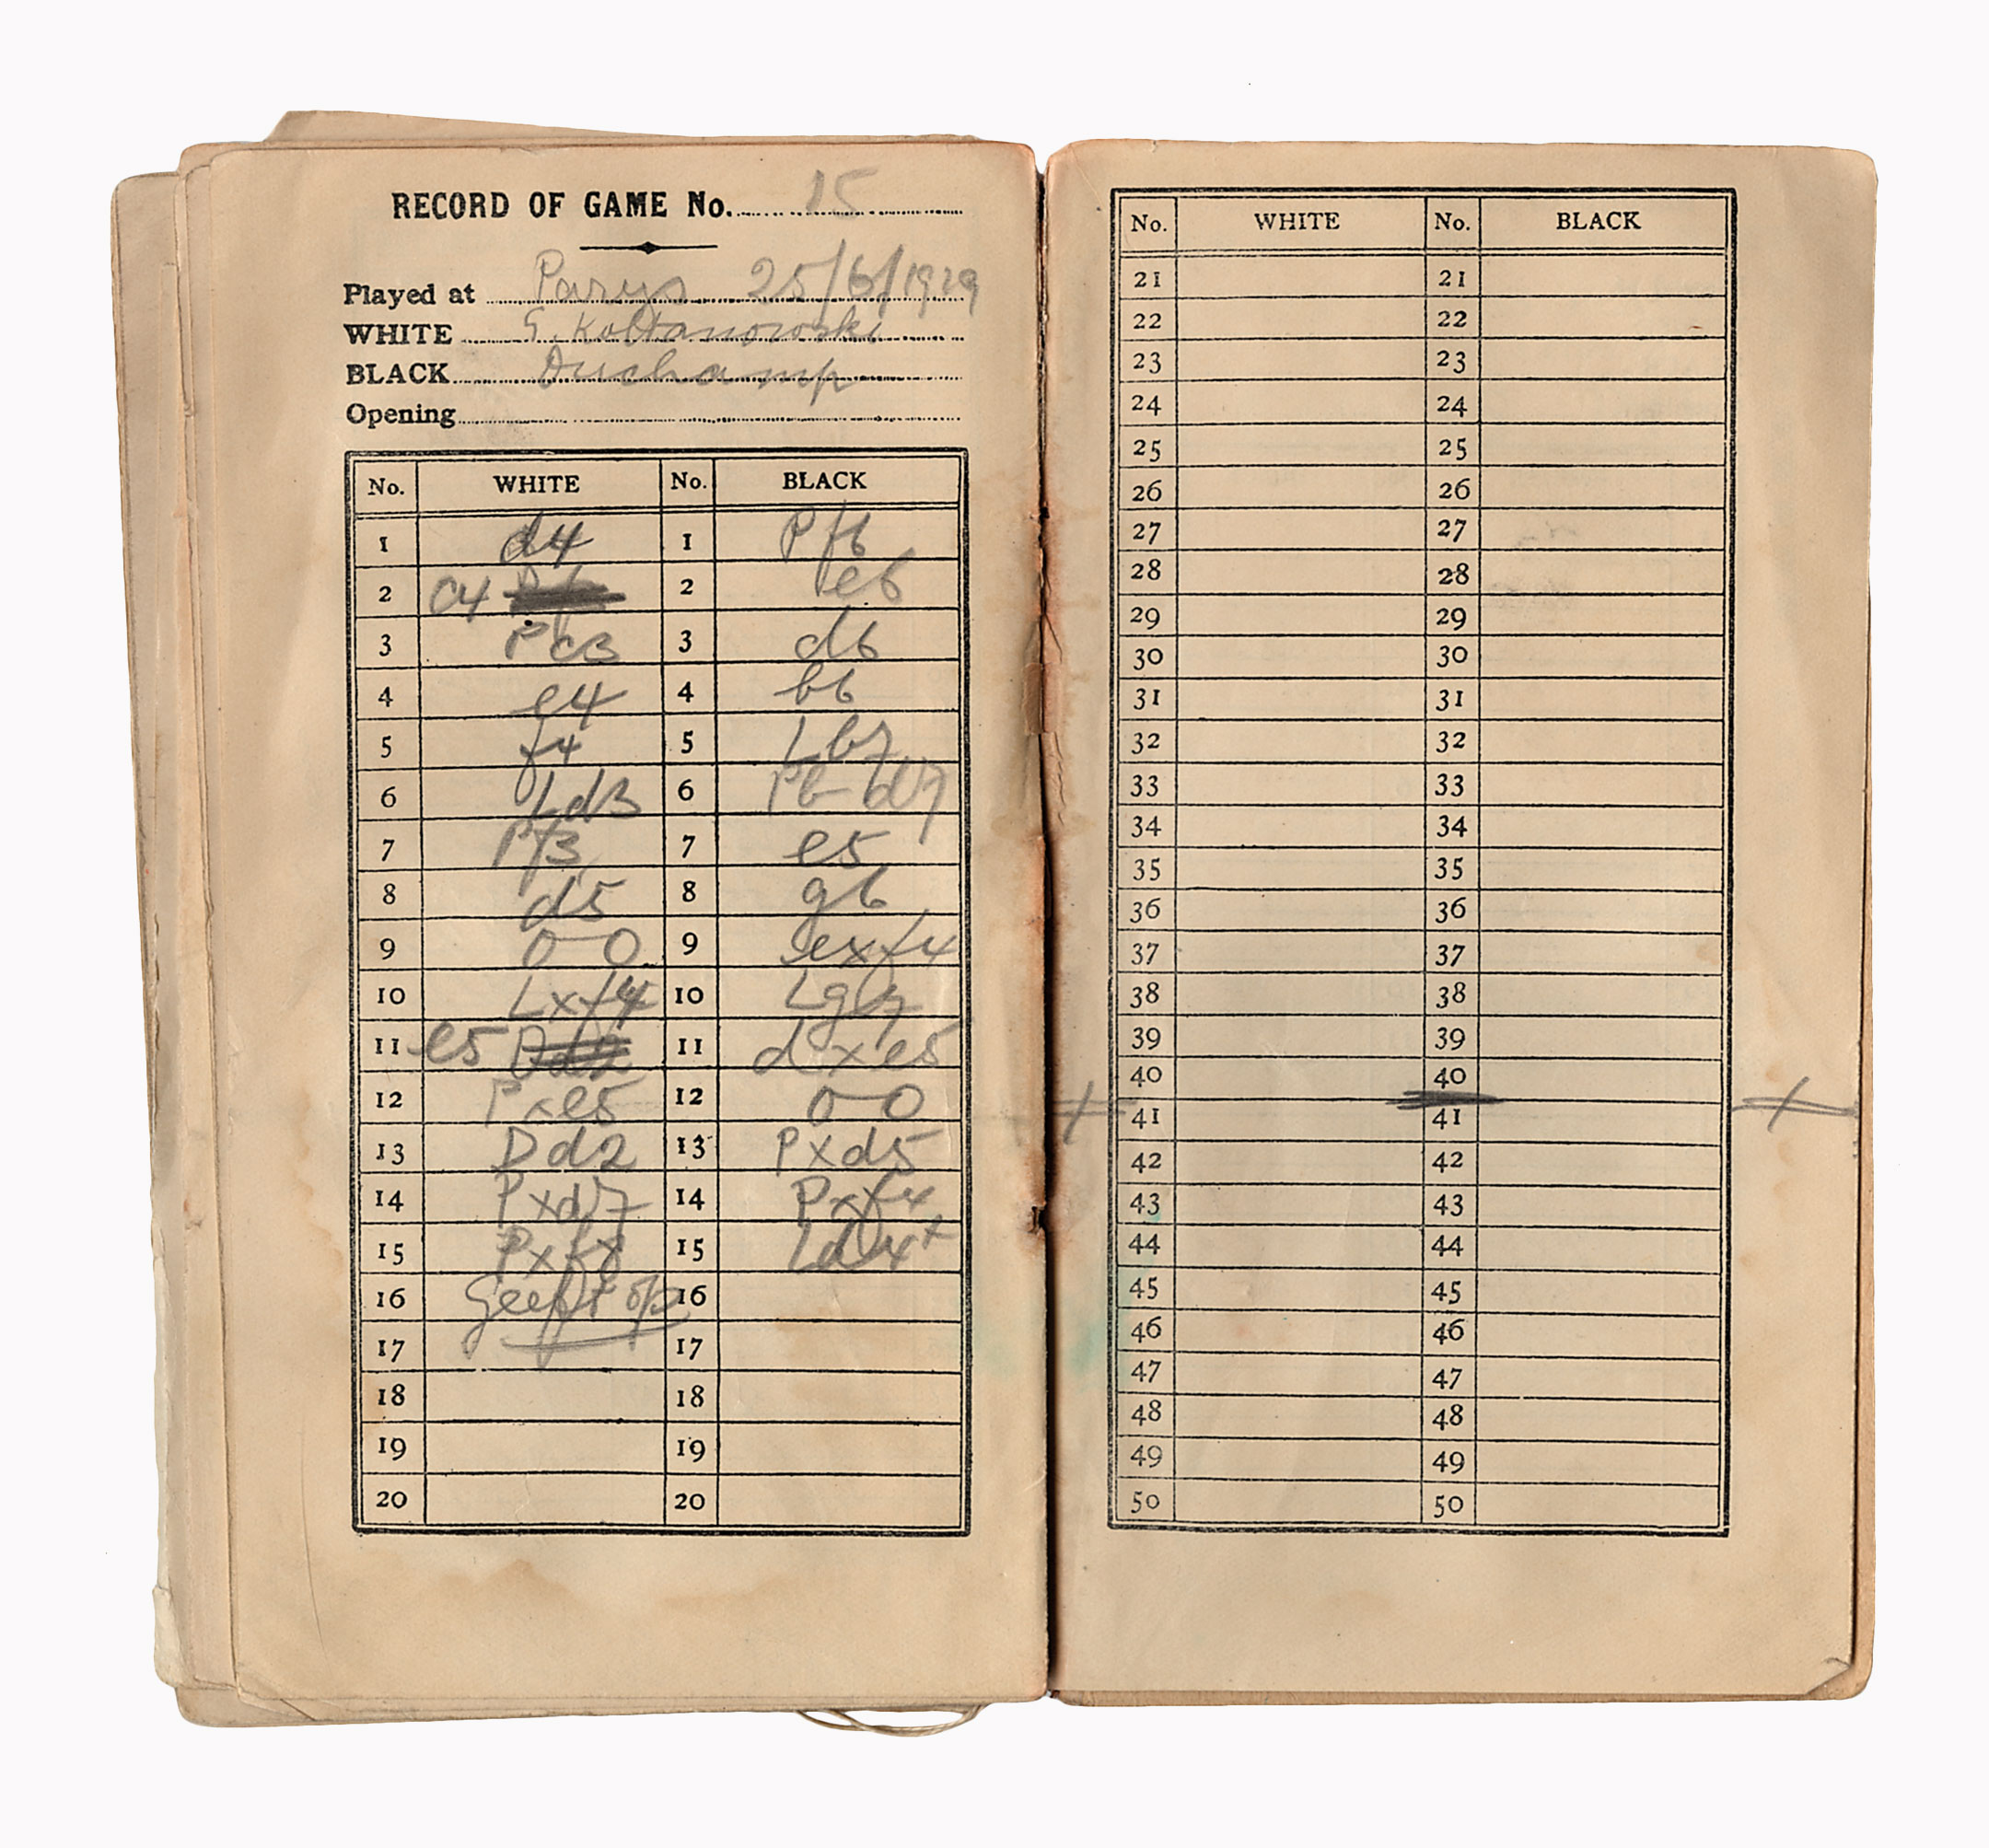 RECORD OF GAME No. 15
Played at Parys 25/6/1929
WHITE G. Koltanowski
BLACK Duchamp
Opening
No. WHITE No. BLACK
1 d4 1 Pf6
2 c4 2 e6
3 Pc3 3 d6
4 e4 4 b6
5 f4 5 Lb7
6 Ld3 6 Pb-d7
7 Pf3 7 e5
8 d5 8 g6
9 0-0 9 exf4
10 Lxf4 10 Lg7
11 e5 Dd2 11 dxe5
12 Pxe5 12 0-0
13 Dd2 13 Pxd5
14 Pxd7 14 Pxf4
15 Pxf8 15 Ld4+
16 Geeft op 16
17 17
18 18
19 19
20 20
No. WHITE No. BLACK
21 21
22 22
23 23
24 24
25 25
26 26
27 27
28 28
29 29
30 30
31 31
32 32
33 33
34 34
35 35
36 36
37 37
38 38
39 39
40 40
41 41
42 42
43 43
44 44
45 45
46 46
47 47
48 48
49 49
50 50